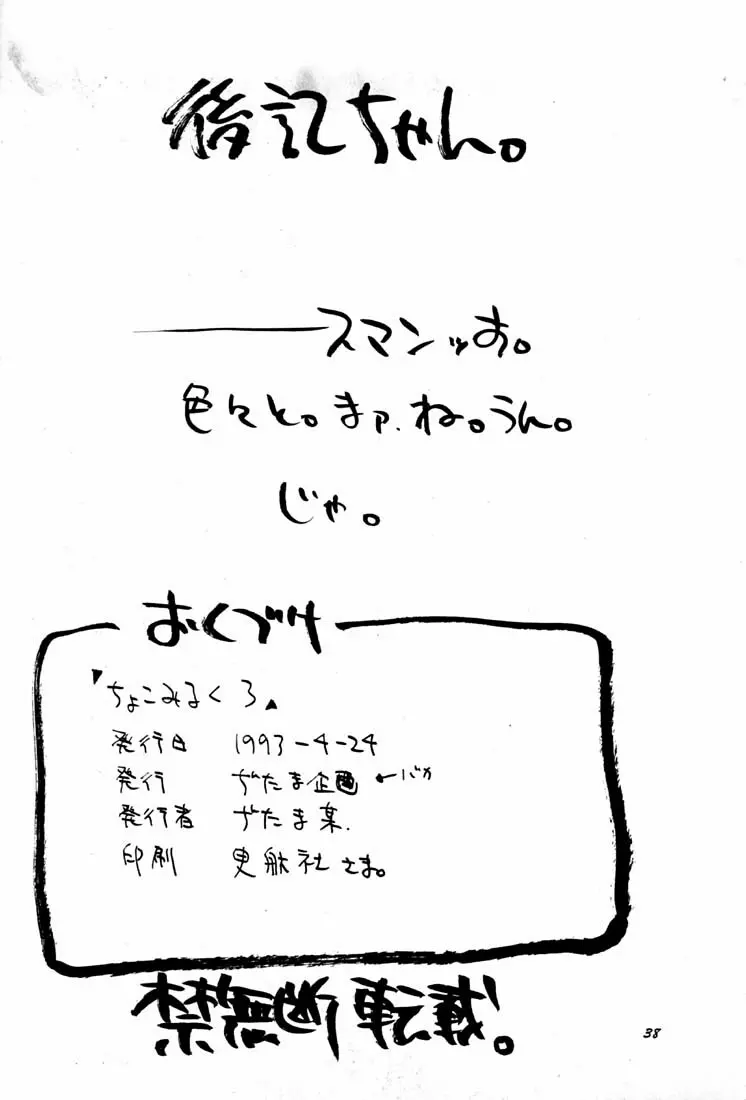 後記ちゃん。
――スマンッす。
色々と。まァ、ね。うん。
じゃ。
おくづけ
「ちょこみるく 3」
発行日 1993-4-24
発行 ぢたま企画 ←バカ
発行者 ぢたま某.
印刷 さま。
禁無断転載。
38